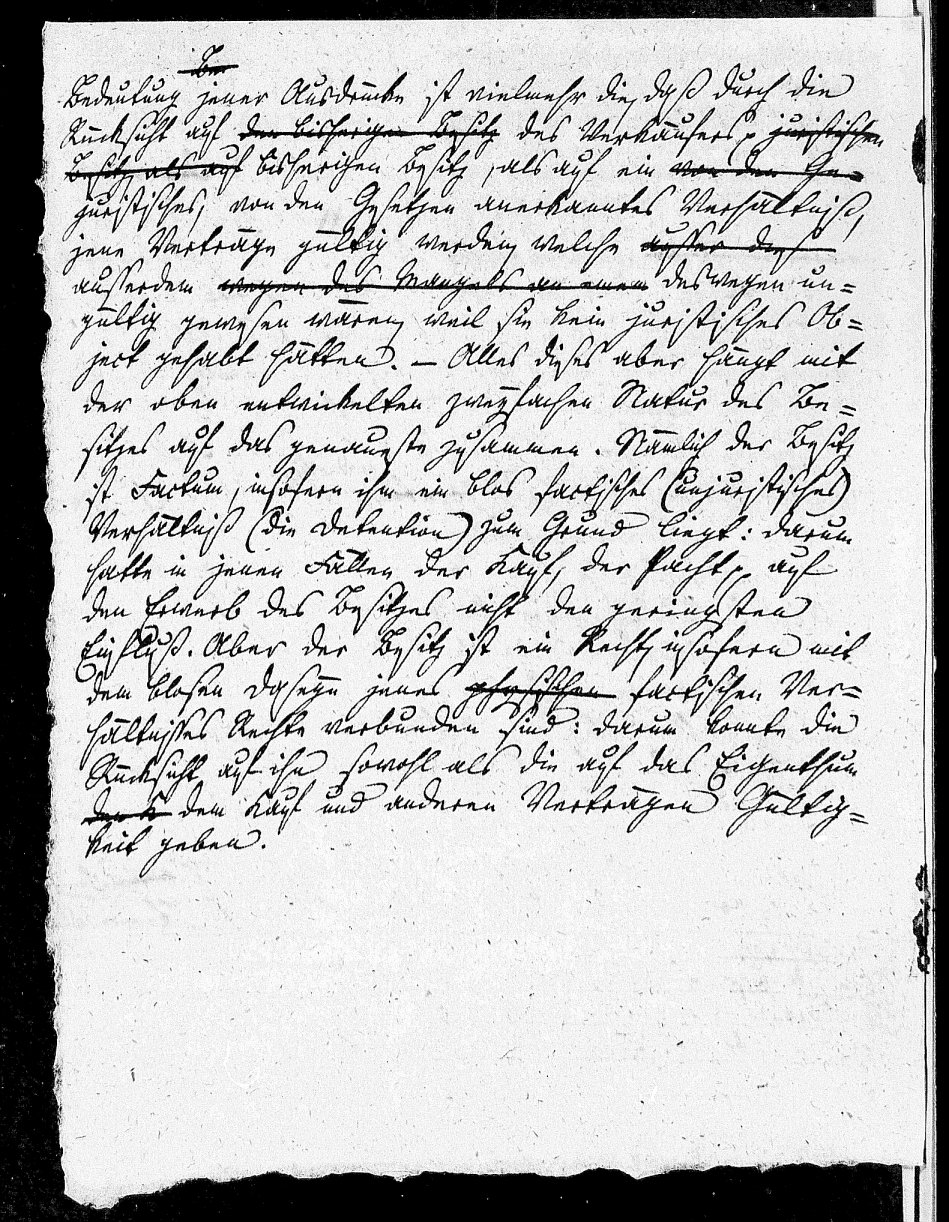 Be
Bedeutung jener Ausdrücke ist vielmehr die, daß durch die
Rücksicht auf den bisherigen Besitz des Verkäufers, juristischen
Besitz, als auf bisherigen Besitz, als auf ein von den Ge-
juristisches, von den Gesetzen anerkanntes Verhältniß,
jene Verträge gültig werden, welche ausser dieser
ausserdem wegen des Mangels an einem deswegen un-
gültig gewesen wären, weil sie kein juristisches Ob-
ject gehabt hätten. – Alles dieses aber hängt mit
der oben entwickelten zweyfachen Natur des Be-
sitzes auf das genaueste zusammen. Nämlich der Besitz
ist Factum, insofern ihm ein blos factisches (unjuristisches)
Verhältniß (die Detention) zum Grund liegt: darum
hatte in jenen Fällen der Kauf, der Pacht auf
den Erwerb des Besitzes nicht den geringsten
Einfluß. Aber der Besitz ist ein Recht, insofern mit
dem blosen Daseyn jenes physischen factischen Ver-
hältnisses Rechte verbunden sind: darum konnte die
Rücksicht auf ihn sowohl als die auf das Eigenthum
den K dem Kauf und anderen Verträgen Gültig-
keit geben.